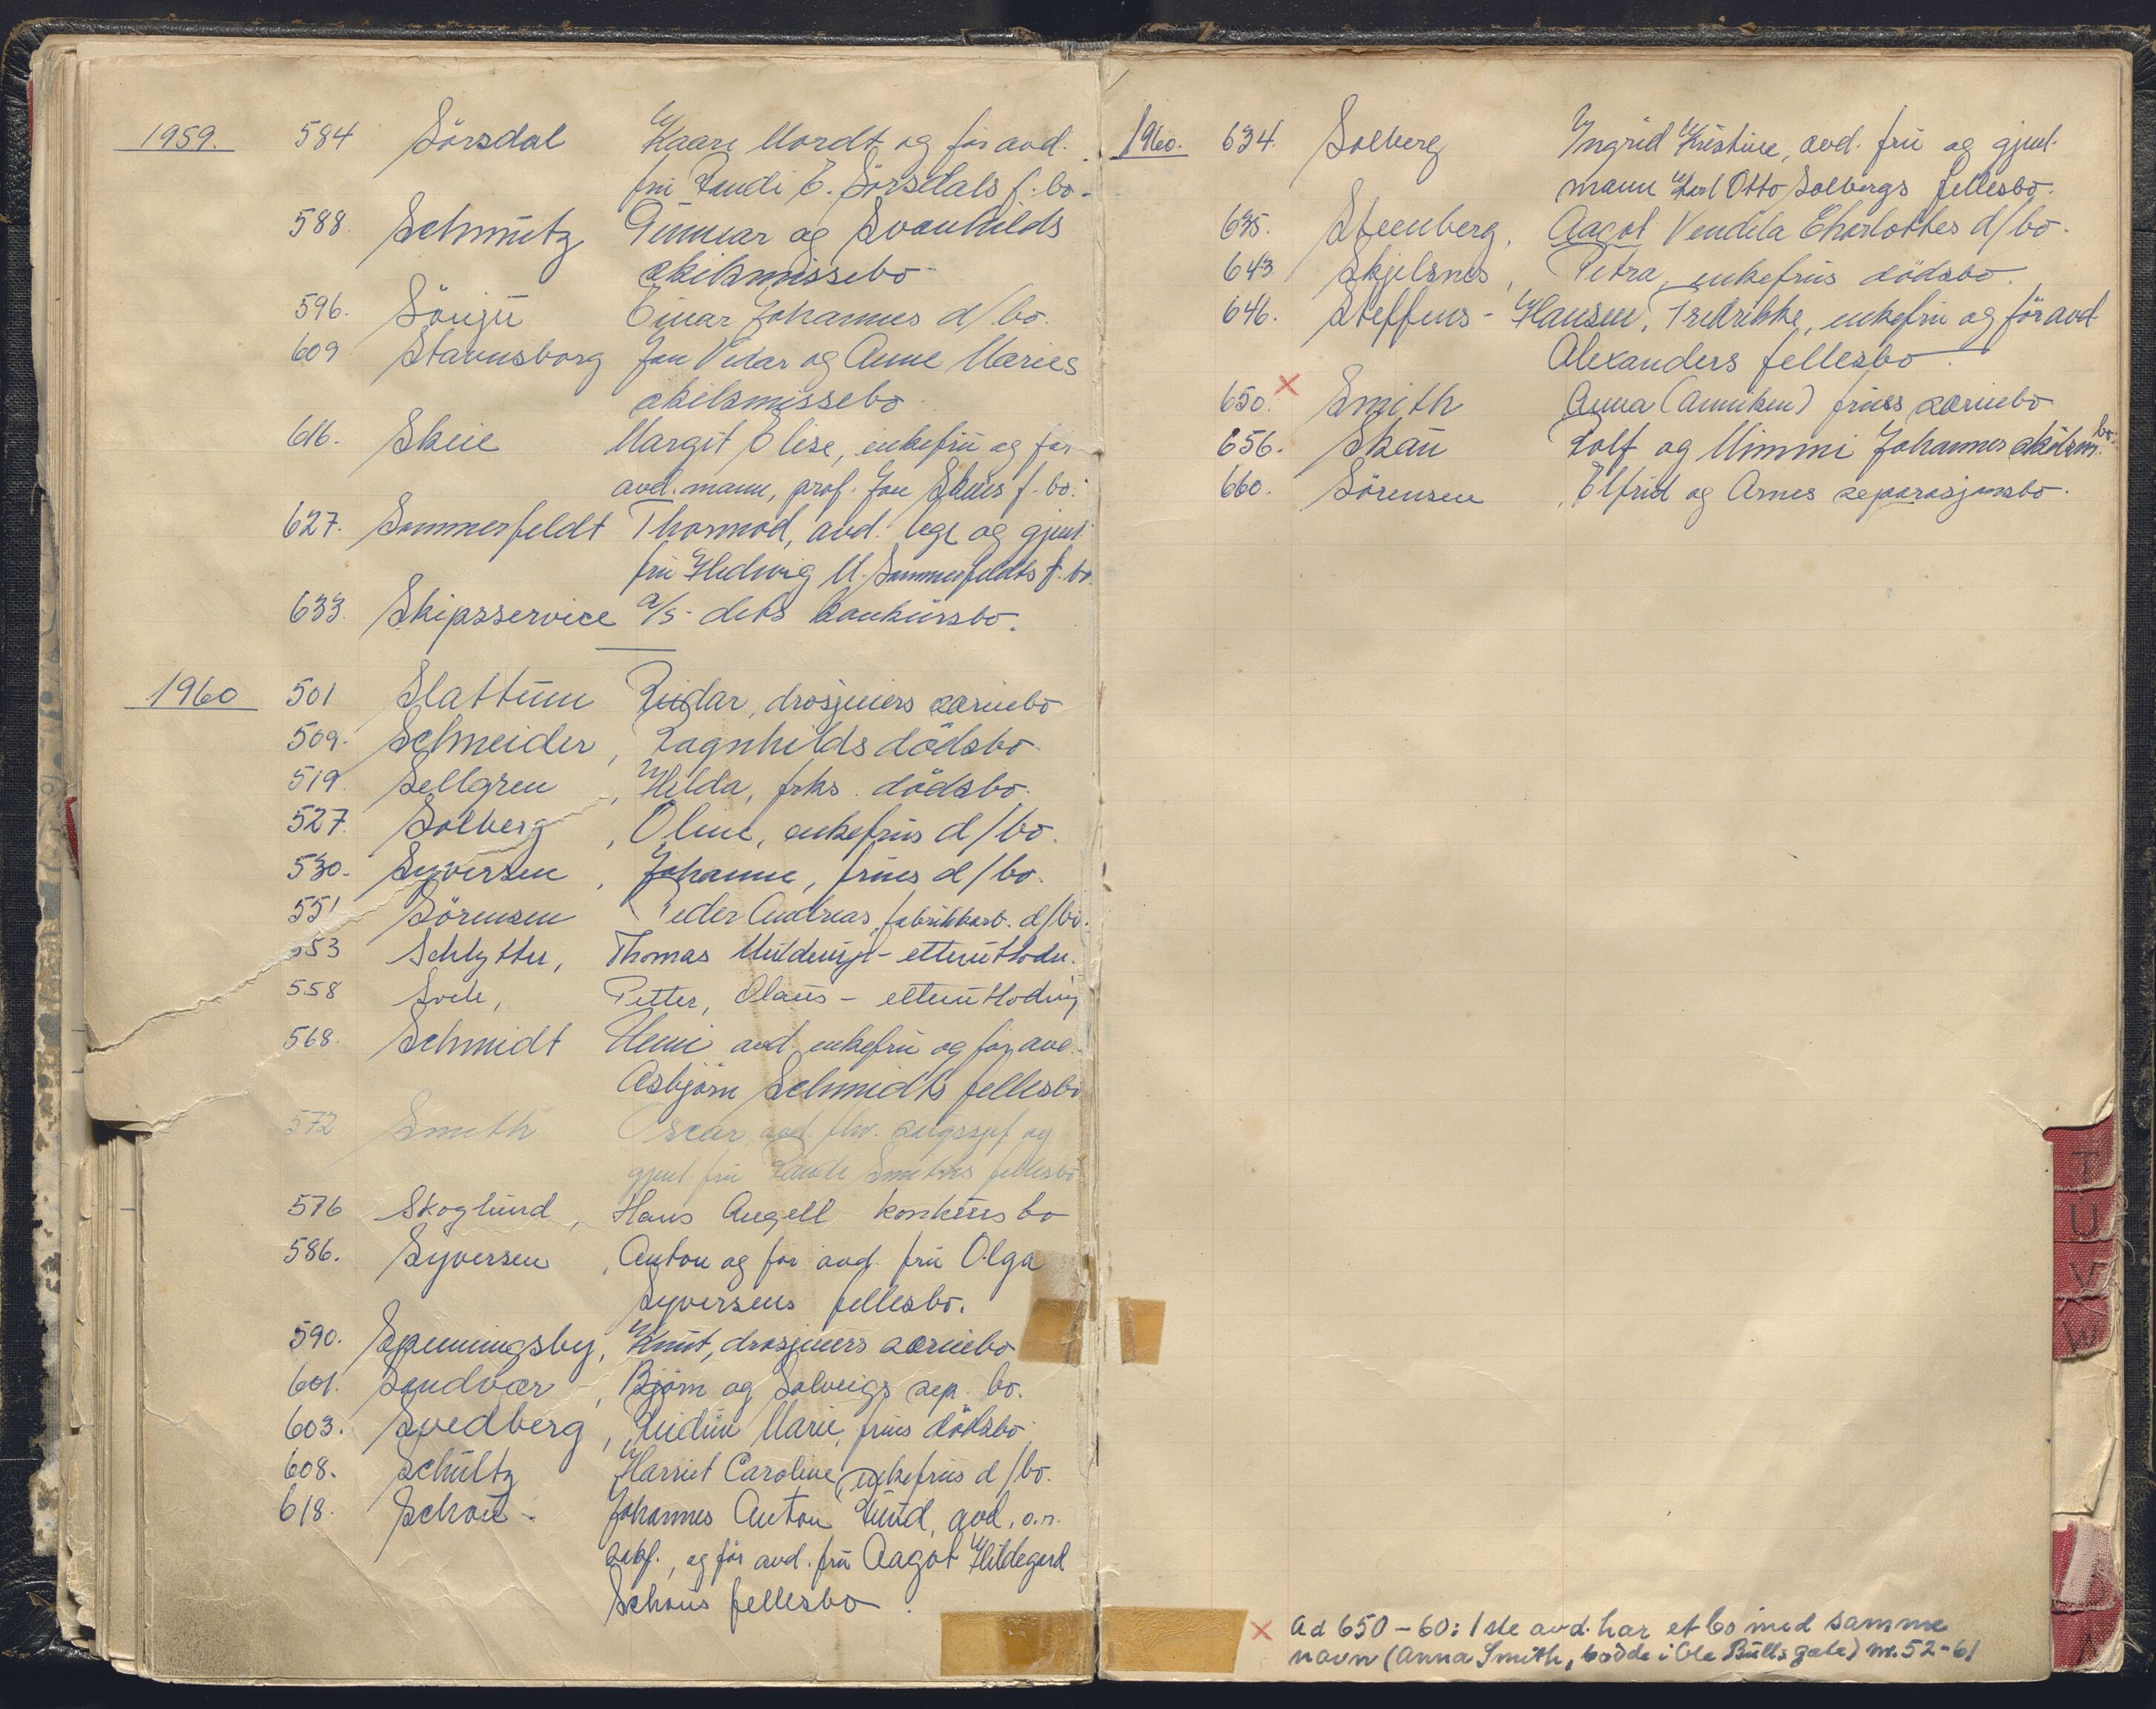 1959. 584 Sörsdal Kaare Mordt og för avd.
fru Randi E. Sörsdals f. bo.
588. Schmütz Gunnar og Svanhilds
skilsmissebo
596. Sönju Einar Johannes d/bo.
609 Stavnsborg Jan Vidar og Anne Maries
skilsmissebo
616. Skeie Margit Elise, enkefru og før
avd. mann, prof. Jon Skeies f. bo.
627. Sommerfeldt Thormod, avd. lege og gjenl.
fru Hedvig M. Sommerfeldts f. bo.
633. Skipsservice a/s - dets konkursbo.
1960 501 Slattum Reidar, drosjeeiers særeiebo
509. Schneider, Ragnhilds dödsbo.
519. Sellgren, Hilda, frks. dödsbo.
527. Solberg, Oline, enkefrus d/bo.
530. Syversen, Johanne, frues d/bo.
551 Sörensen Peder Andreas, fabrikkarb. d/bo.
553 Schlytter, Thomas - etterutlodn.
558 Petter, Olaus - etterutlodning
568. Schmidt avd. enkefru og för avd.
Asbjörn Schmidts fellesbo
572 Smith Oscar, avd. og
gjenl. fru Smiths fellesbo
576 Skoglund, Hans Angell konkursbo
586. Syversen, Anton og för avd. fru Olga
Syversens fellesbo.
590. Spenningsby, Knut, drosjeeiers særeiebo
601. Sandvær, Björn og Solveigs sep. bo.
603. Svedberg, Reidun Marie, frues dödsbo
608. Schultz Harriet Caroline, enkefrus d/bo.
618. Schou. Johannes Anton Lund, avd. o.r.
sakf., og för avd. fru Aagot Hildegard
Schous fellesbo.
1960. 634. Solberg Ingrid Kristine, avd. fru og gjenl.
mann Karl Otto Solbergs fellesbo.
635. Steenberg, Aagot Vendila Charlottes d/bo.
643 Skjelsnes, Petra, enkefrus dödsbo.
646. Steffens - Hansen, Fredrikke, enkefru og för avd
Alexanders fellesbo.
650. × Smith Anna (Anniken) frues særeiebo
656. Skau Rolf og Mimmi Johannes skilsm. bo.
660. Sörensen, Elfrid og Arnes separasjonsbo.
× Ad 650-60: 1ste avd. har et bo med samme
navn (Anna Smith, bodde i Ole Bulls gate) nr. 52-61
T
U
V
W